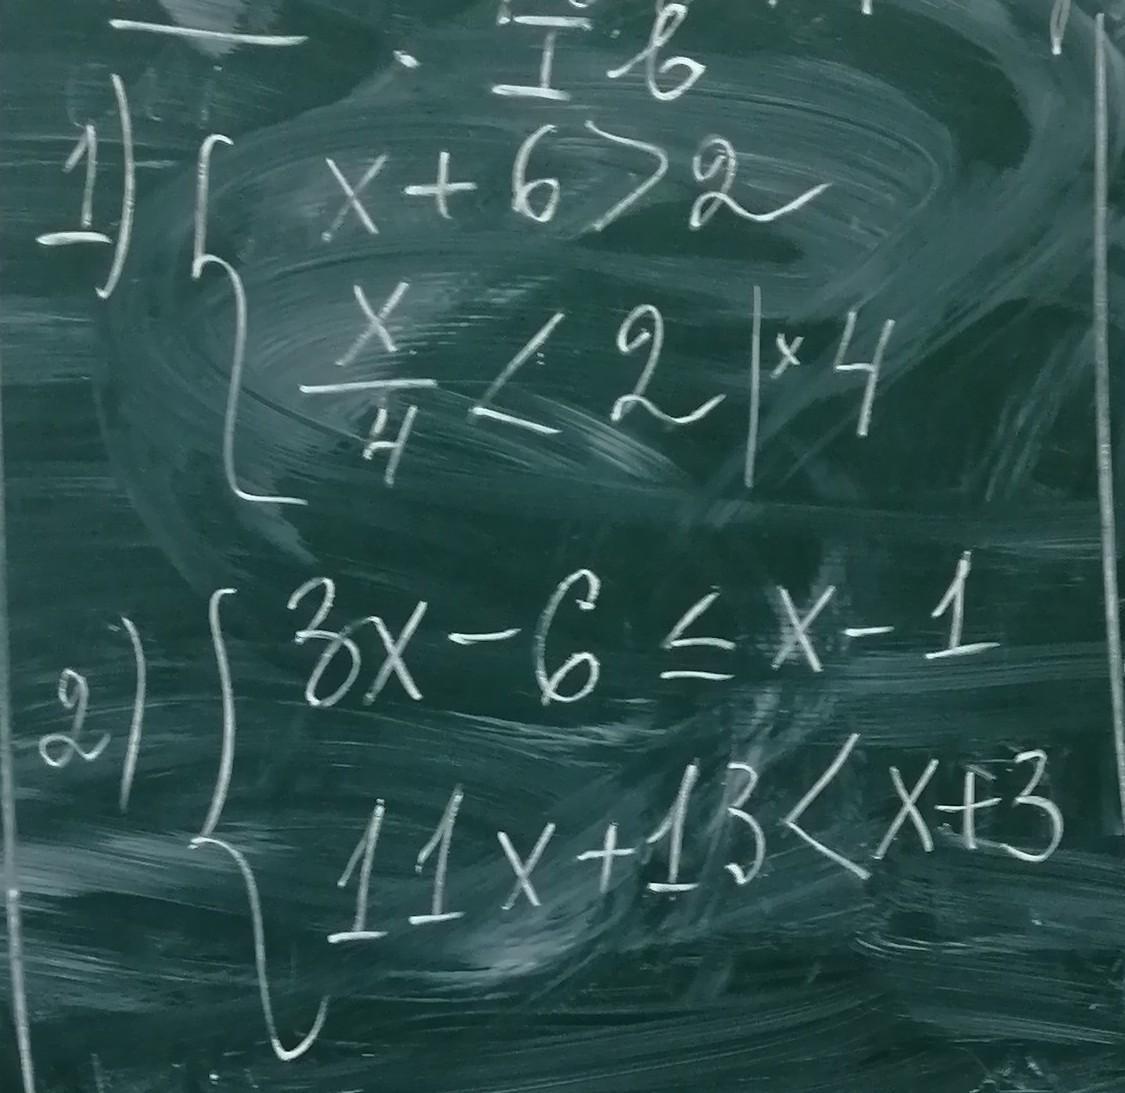 I в
1) { x + 6 > 2
x/4 < 2 | × 4
2) { 3x - 6 ≤ x - 1
11x + 13 < x + 3